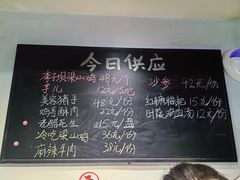 今日供应
李子坝梁山鸡 48元/斤
沙参 42元/份
芋儿 12元/份
美容猪手 48元/份
红糖糍粑 15元/份
鸡喜酥肉 22元/份
时蔬 12元/份
老醋花生 15元/份
冷吃梁山鸡 36元/份
麻辣牛肉 38元/份